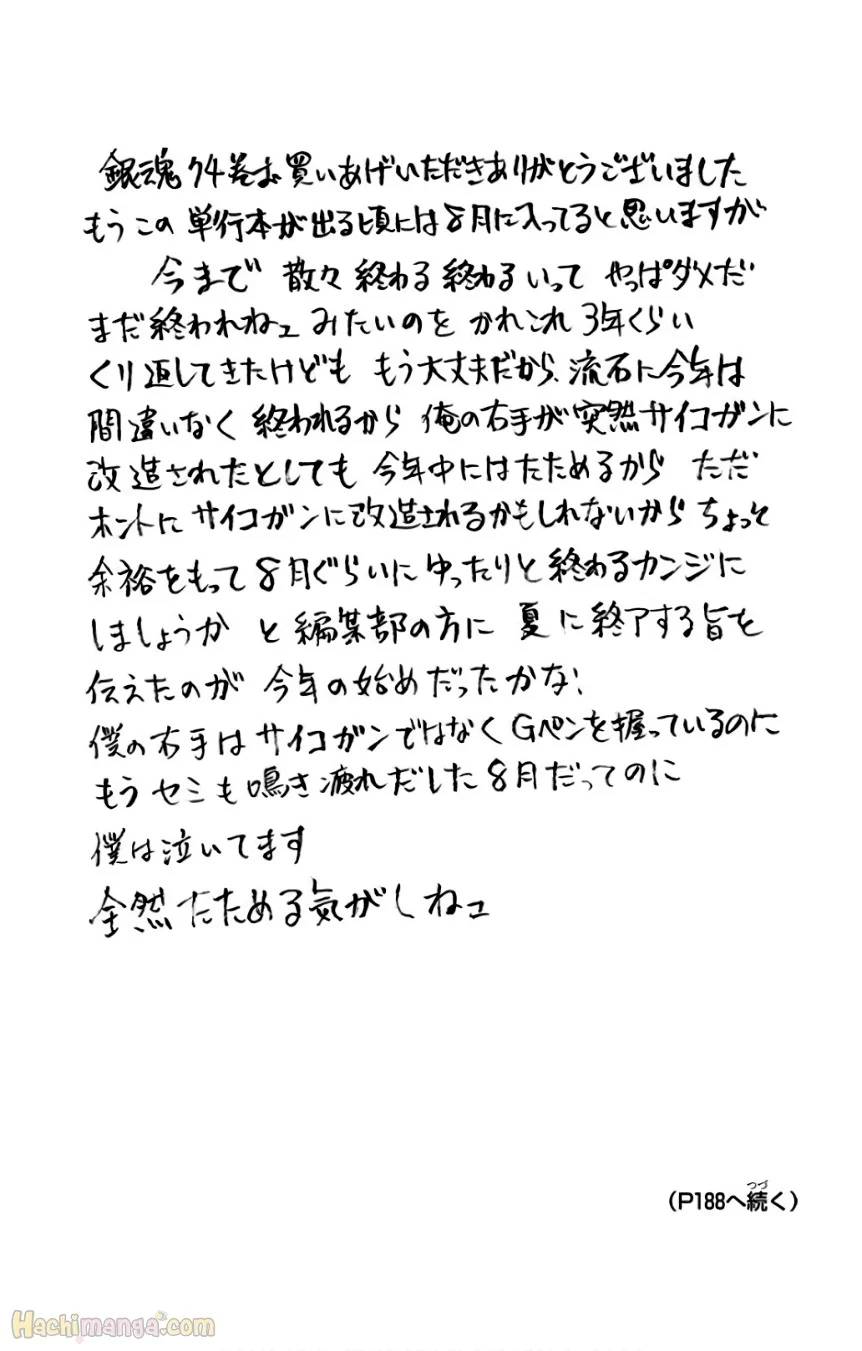 銀魂74巻お買いあげいただきありがとうございました
もうこの 単行本が出る頃には8月に入ってると思いますが
今まで 散々 終わる 終わるいって やっぱダメだ
まだ終われねェ みたいのを かれこれ 3年くらい
くり返してきたけども もう大丈夫だから、流石に今年は
間違いなく 終われるから 俺の右手が突然サイコガンに
改造されたとしても 今年中にはたためるから ただ
ホントに サイコガンに改造されるかもしれないから ちょっと
余裕をもって 8月ぐらいに ゆったりと終わるカンジに
しましょうか と編集部の方に 夏に終了する旨を
伝えたのが 今年の始めだったかな
僕の右手はサイコガンではなくGペンを握っているのに
もう セミも鳴き疲れだした8月だってのに
僕は泣いてます
全然たためる気がしねェ
つづ
(P188へ続く)
Hachimanga.com